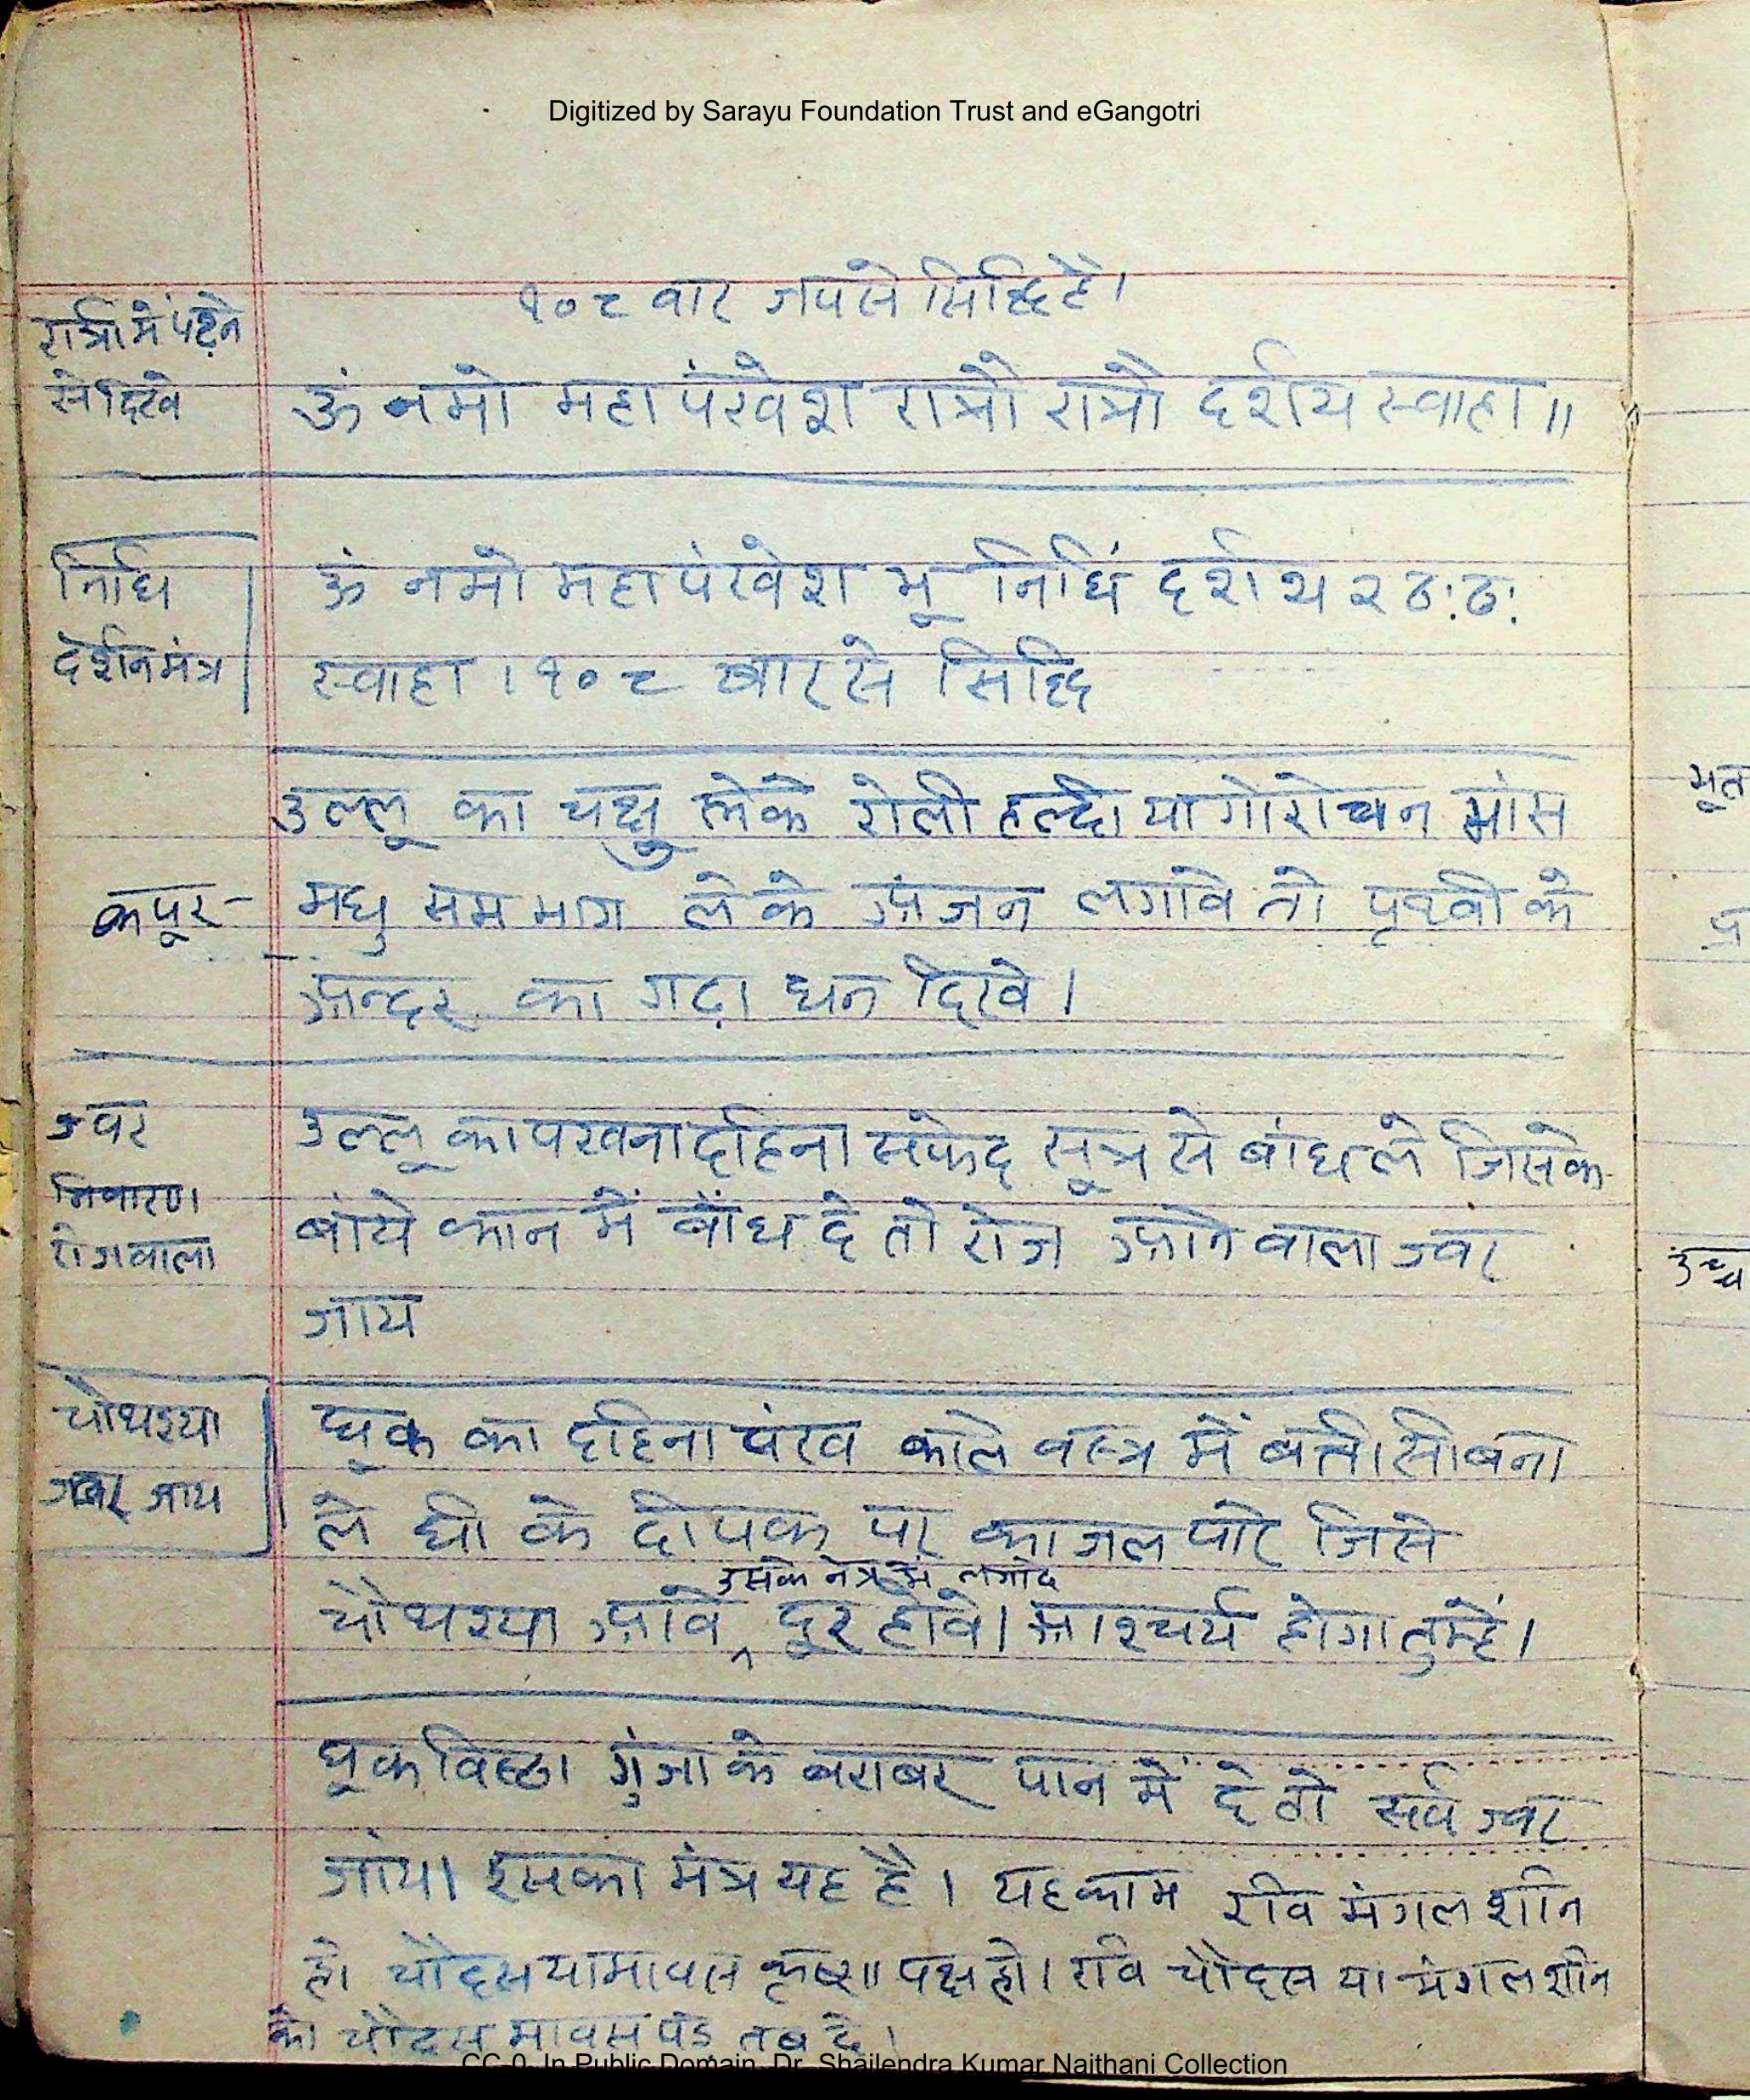 Digitized by Sarayu Foundation Trust and eGangotri
१०८ वार जपसे सिद्धि है।
रात्रीमें पढ़ने
से दिखे
ॐ नमो महापंखेश रात्रो रात्रो दर्शय स्वाहा॥
निधि
दर्शन मंत्र
ॐ नमो महापंखेश भू निधिं दर्शय २ ठः ठः
स्वाहा। १०८ बार से सिद्धि
उल्लू का चक्षु लेके रोली हल्दी या गोरोचन मांस
कपूर- मधु सम भाग लेके अंजन लगावे तो पृथ्वी के
अन्दर का गढ़ा धन दिखे।
ज्वर
निवारण
रोजवाला
उल्लू का पखना दाहिना सफेद सूत्र से बांधले जिसके
बांये कान में बाँध दे तो रोज आने वाला ज्वर
जाय
चौथइया
ज्वर जाय
घूक का दाहिना पंख काले वस्त्र में बत्ती सी बना
ले घी के दीपक पर काजल पारे जिसे
उसके नेत्र में लगादे
चौथइया आवे ^ दूर होवे। आश्चर्य होगा तुम्हें।
घूक विष्ठा गुंजा के बराबर पान में दे तो सर्व ज्वर
जांय। इसका मंत्र यह है। यह काम रवि मंगल शनि
हो चौदस या मावस कृष्ण पक्ष हो। रवि चौदस या मंगल शनि
को चौदस मावस पडे तब दे।
भूत
उच्च
CC-0. In Public Domain. Dr. Shailendra Kumar Naithani Collection